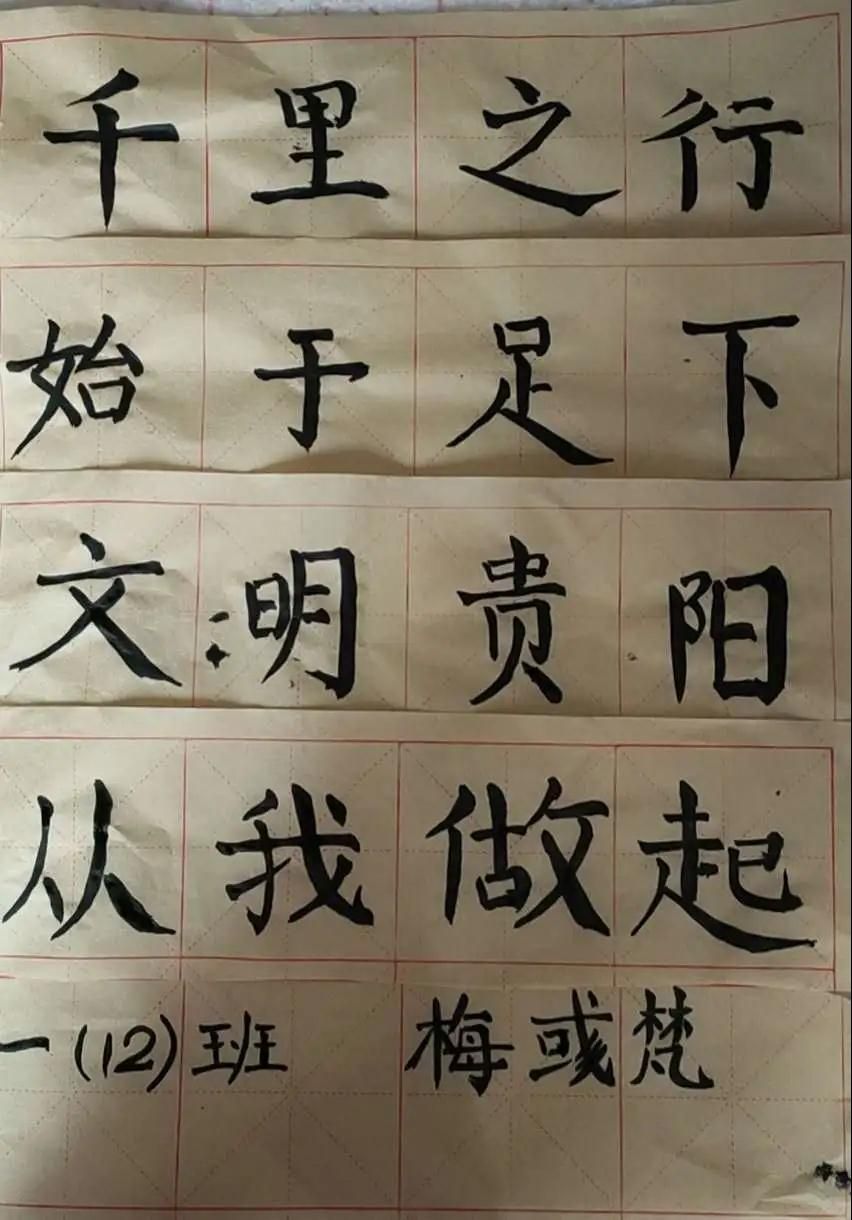 千里之行
始于足下
文明贵阳
从我做起
一(12)班 梅彧梵